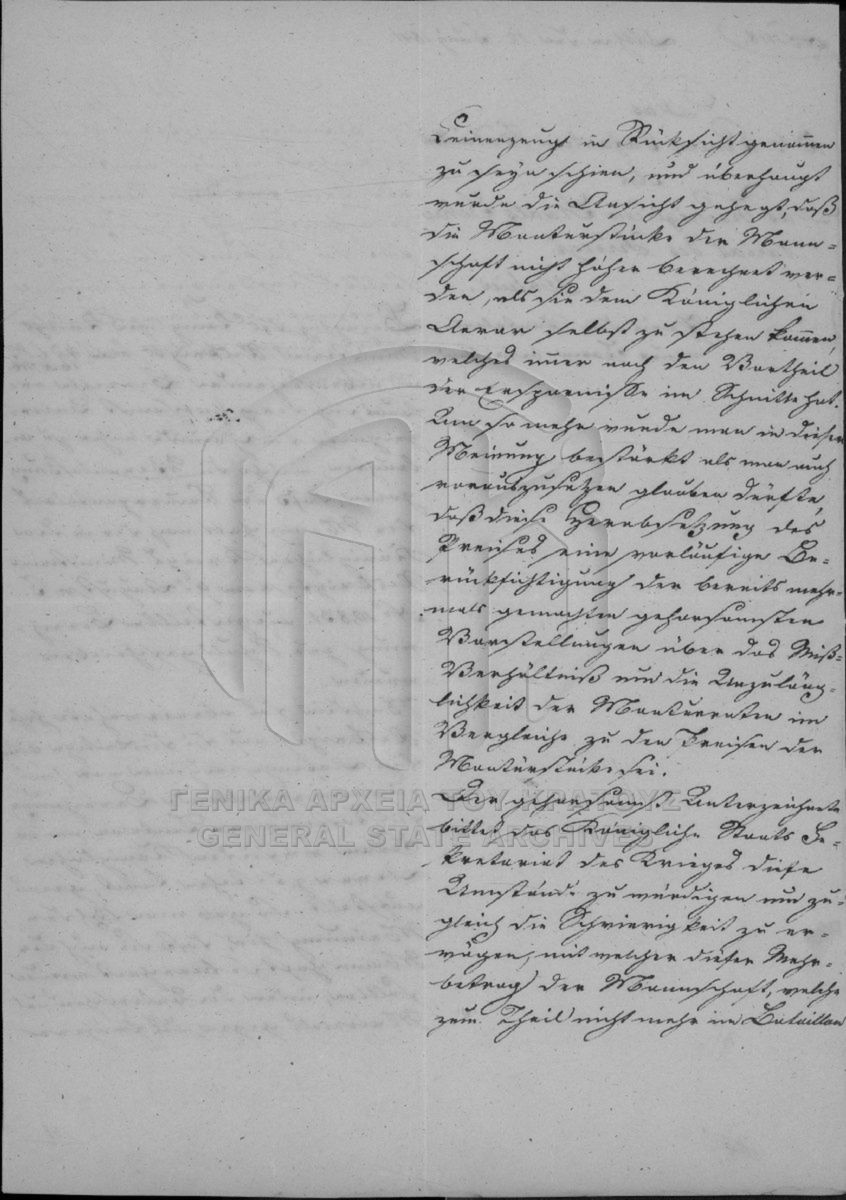 Leinenzeugs in Rücksicht genommen
zu seyn schien, und überhaupt
wurde die Ansicht gehegt, daß
die Monturstücke der Mann-
schaft nicht höher berechnet wer-
den, als sie dem Königlichen
Aerar selbst zu stehen kommen,
welches immer noch den Vortheil
der Ersparnisse im Schnitte hat.
Um so mehr wurde man in dieser
Meinung bestärkt als man auch
vorauszusetzen glauben dürfte,
daß diese Herabsetzung des
Preises eine vorläufige Be-
rücksichtigung der bereits mehr-
mals gemachten gehorsamsten
Vorstellungen über das Miß-
Verhältniß und die Unzuläng-
lichkeit der Monturraten im
Vergleiche zu den Preisen der
Monturstücke sei.
Der gehorsamst Unterzeichnete
bittet das Königliche Staats Se-
kretariat des Krieges diese
Umstände zu würdigen und zu-
gleich die Schwierigkeit zu er-
wägen, mit welcher dieser Mehr-
betrag der Mannschaft, welche
zum Theil nicht mehr im Bataillon
ΓΕΝΙΚΑ ΑΡΧΕΙΑ ΤΟΥ ΚΡΑΤΟΥΣ
GENERAL STATE ARCHIVES